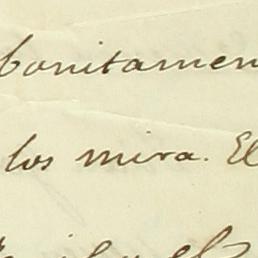 bonitamen
los mira. El